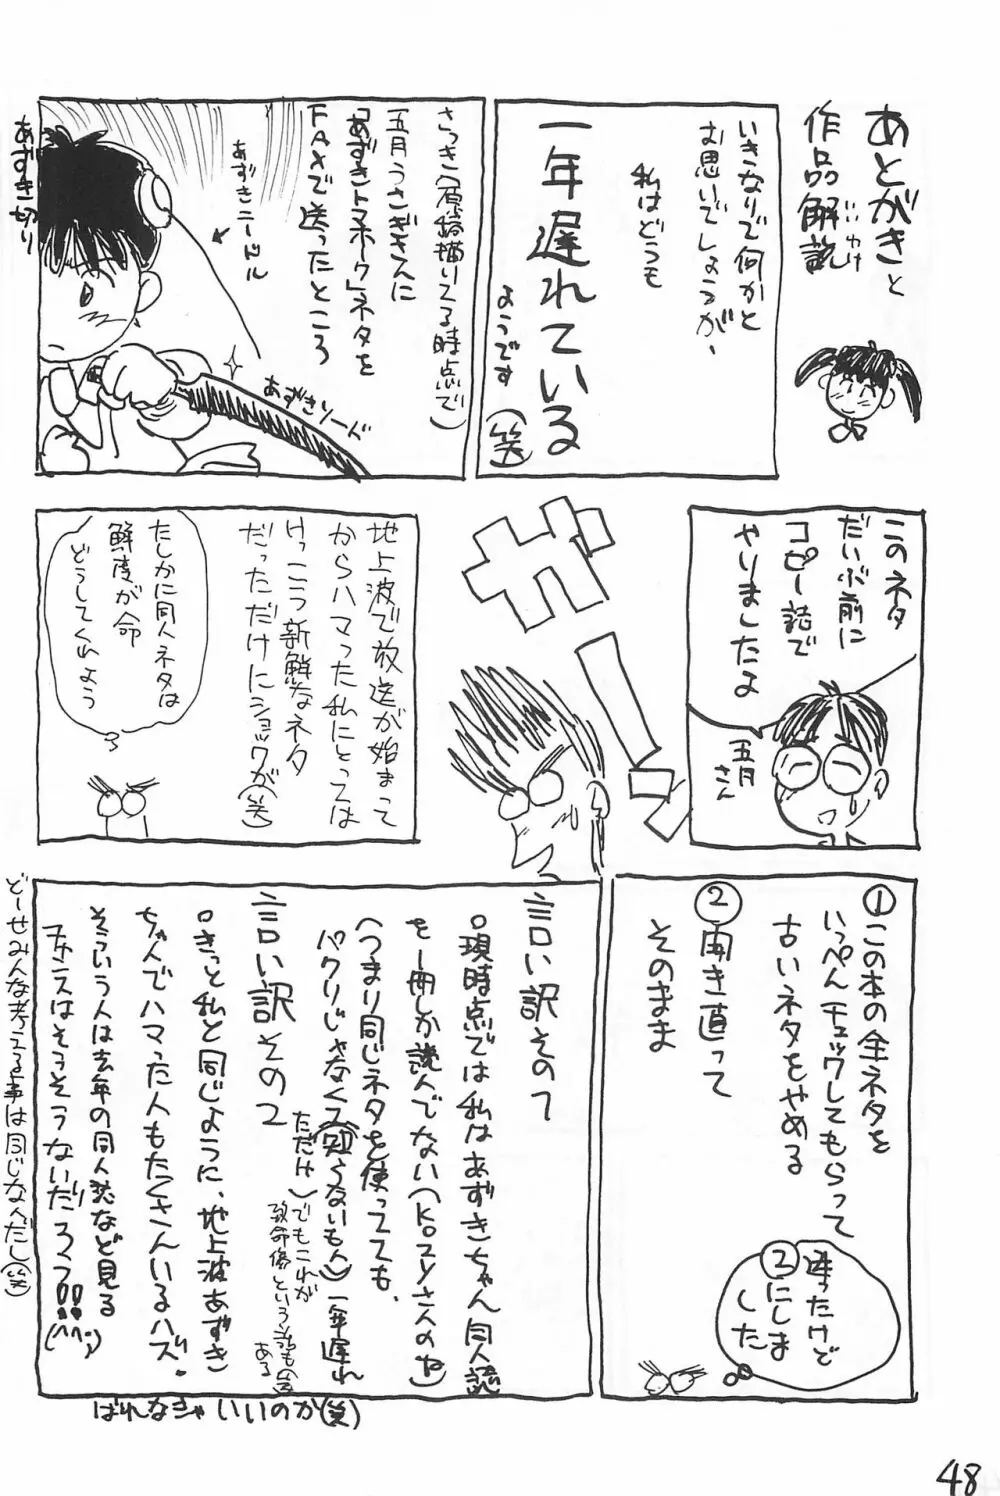 あとがきと
作品解説
いいわけ
いきなりで何かと
お思いでしょうが、
私はどうも
一年遅れている
ようです
(笑)
さっき(原稿描いてる時点で)
五月うさぎさんに
「あずきトマホーク」ネタを
FAXで送ったところ
あずきニードル
あずきソード
あずき切り
このネタ
だいぶ前に
コピー誌で
やりましたよ
五月
さん
ガーン
地上波で放送が始まって
からハマった私にとっては
けっこう新鮮なネタ
だっただけにショックが(笑)
たしかに同人ネタは
鮮度が命
どうしてくれよう
①この本の全ネタを
いっぺんチェックしてもらって
古いネタをやめる
②開き直って
そのまま
迷ったけど
②にしま
した
言い訳その1
○現時点では私はあずきちゃん同人誌
を一冊しか読んでない(KOZYさんのね)
(つまり同じネタを使ってても、
パクリじゃなくて(知らないもん)一年遅れ
ただけ)でもこれが
致命傷という話もの
ある
言い訳その2
○きっと私と同じように、地上波あずき
ちゃんでハマった人もたくさんいるハズ。
そういう人は去年の同人誌など見る
チャンスはそうそうないだろう!!(^^;)
どーせみんな考える事は同じなんだし(笑)
ばれなきゃいいのか(笑)
48